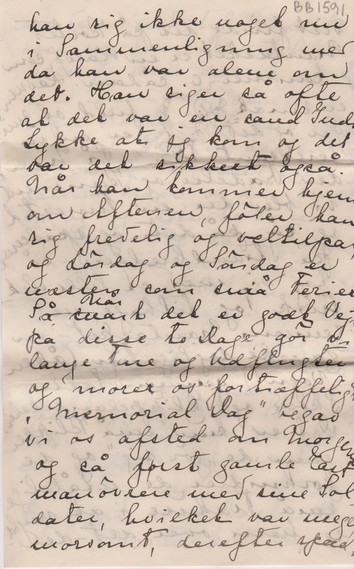 BB1591
han sig ikke noget nu
i Sammenligning med
da han var alene om
det. Han siger så ofte
at det var en sand Guds
Lykke at jg kom og det
var det sikkert også.
Når han kommer hjem
om Aftenen, føler han
sig fredelig og veltilpas
og Lördag og Söndag er
næsten som små Ferier
Så når det er godt Vejr
på disse to Dage gör vi
lange Ture og Udflugter
og morer os fortræffeligt
"Memorial Day" begav
vi os afsted om Morgen
og så först gamle
manövrere med sine Sol
dater, hvilket var meget
morsomt, derefter